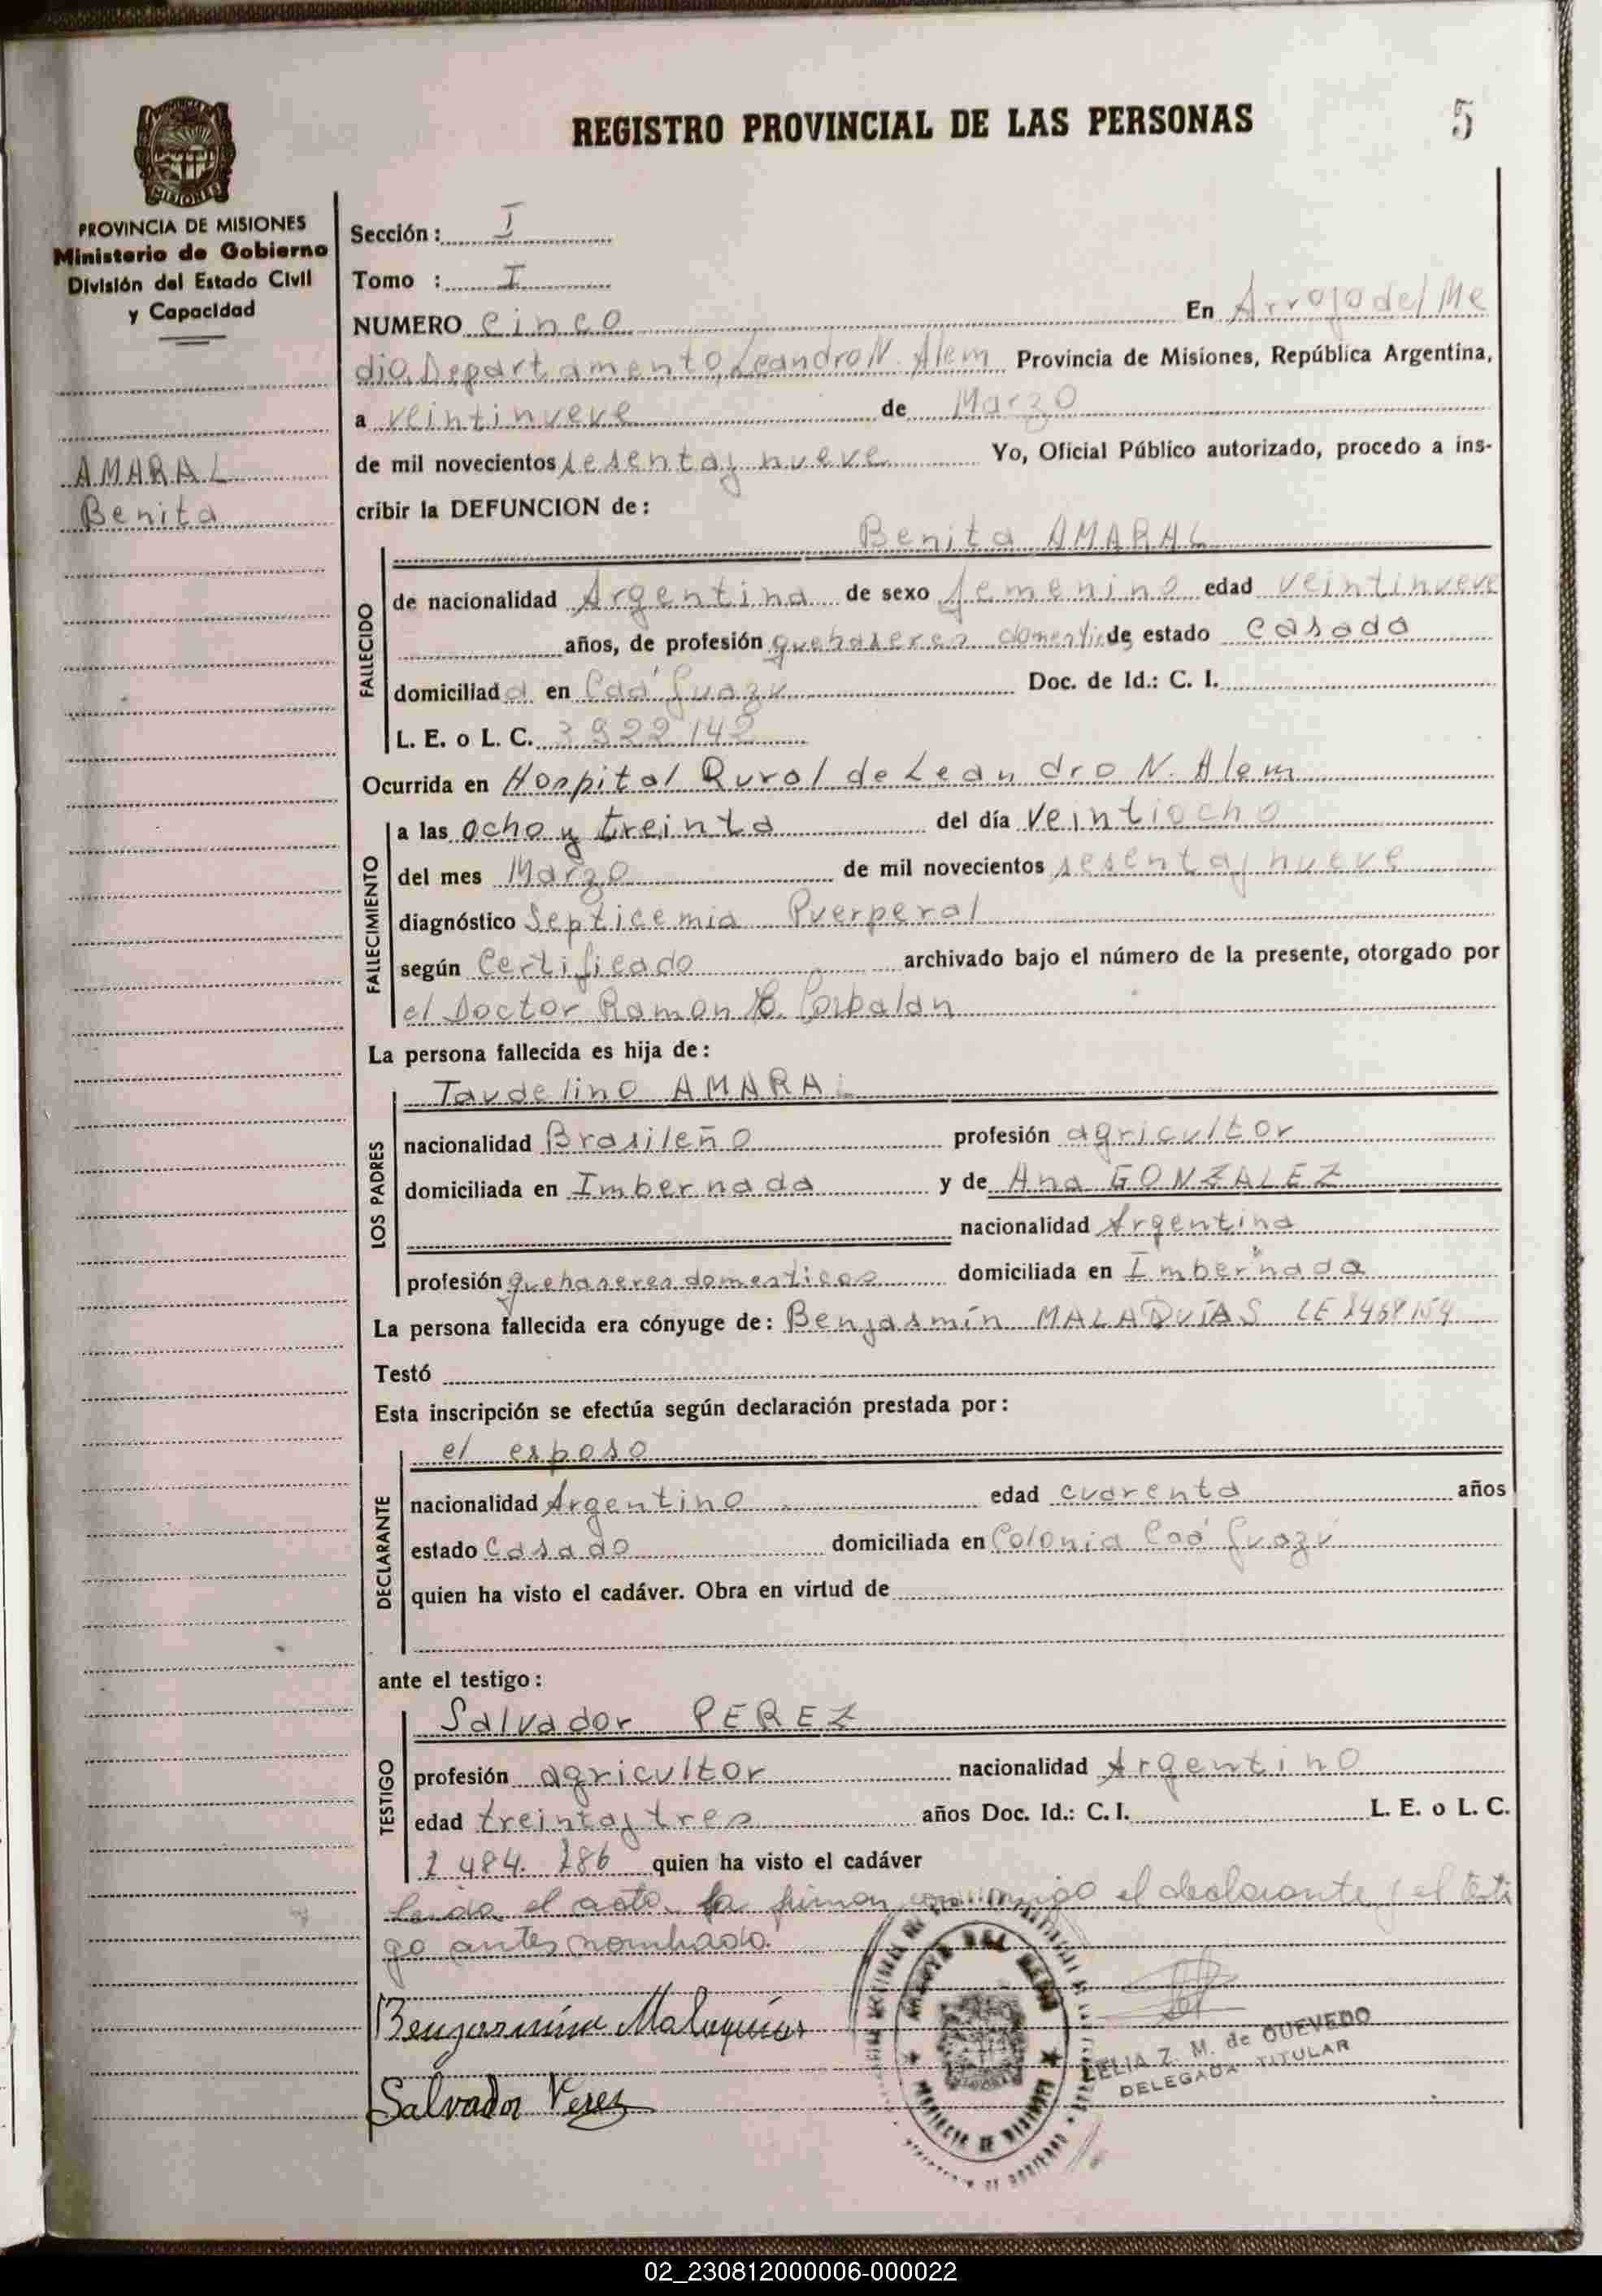 REGISTRO PROVINCIAL DE LAS PERSONAS
5
MISIONES
PROVINCIA DE MISIONES
Ministerio de Gobierno
División del Estado Civil
y Capacidad
AMARAL
Benita
Sección: I
Tomo : I
NUMERO cinco En Arroyo del Me
dio, Departamento, Leandro N. Alem Provincia de Misiones, República Argentina,
a veintinueve de Marzo
de mil novecientos sesenta y nueve Yo, Oficial Público autorizado, procedo a ins-
cribir la DEFUNCION de:
Benita AMARAL
FALLECIDO
de nacionalidad Argentina de sexo femenino edad veintinueve
años, de profesión quehaseres domestic de estado casada
domiciliada en Caá Guazu Doc. de Id.: C. I.
L. E. o L. C. 3922142
Ocurrida en Hospital Rural de Leandro N. Alem
FALLECIMIENTO
a las ocho y treinta del día veintiocho
del mes Marzo de mil novecientos sesenta y nueve
diagnóstico Septicemia Puerperal
según Certificado archivado bajo el número de la presente, otorgado por
el Doctor Ramon Corbalan
La persona fallecida es hija de:
LOS PADRES
Taudelino AMARAL
nacionalidad Brasileño profesión agricultor
domiciliada en Imbernada y de Ana GONZALEZ
nacionalidad Argentina
profesión quehaseres domesticos domiciliada en Imbernada
La persona fallecida era cónyuge de: Benjasmín MALAQUÍAS LE
Testó
Esta inscripción se efectúa según declaración prestada por:
DECLARANTE
el esposo
nacionalidad Argentino edad cuarenta años
estado Casado domiciliada en Colonia Caá Guazú
quien ha visto el cadáver. Obra en virtud de
ante el testigo:
TESTIGO
Salvador PEREZ
profesión agricultor nacionalidad Argentino
edad treinta y tres años Doc. Id.: C. I. L. E. o L. C.
quien ha visto el cadáver
Leida el acta la firman conmigo el declarante y el testi
go antes nombrado.
Benjasmín Malaquías
Salvador Perez
CELIA Z. M. de QUEVEDO
DELEGADA TITULAR
02_230812000006-000022